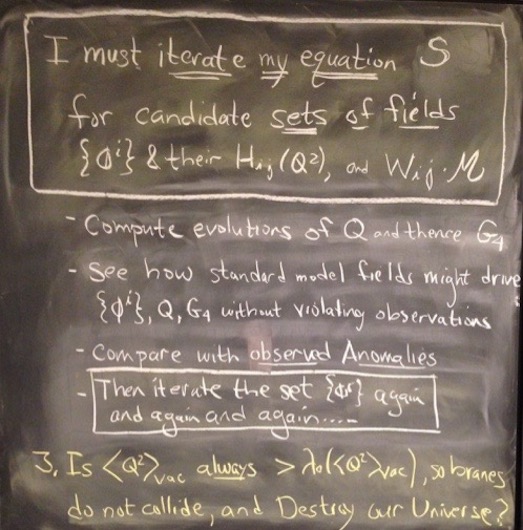 I must iterate my equation S
for candidate sets of fields
{Φⁱ} & their Hᵢⱼ(Q²), and Wᵢⱼ·M
- Compute evolutions of Q and thence G₄
- See how standard model fields might drive
{Φⁱ}, Q, G₄ without violating observations
- Compare with observed Anomalies
- Then iterate the set {Φⁱ} again
and again and again.....
3. Is <Q²>vac always > λ₀(<Q²>vac), so branes
do not collide, and Destroy our Universe?